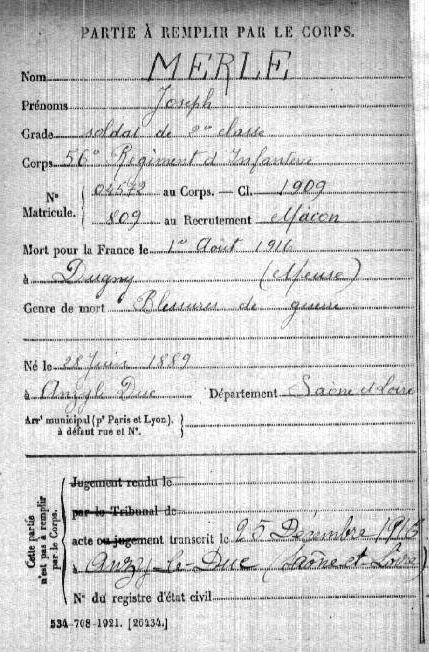 PARTIE À REMPLIR PAR LE CORPS.
Nom MERLE
Prénoms Joseph
Grade soldat de 2e classe
Corps 56e Régiment d'Infanterie
N° Matricule. { 04572 au Corps. — Cl. 1909
809 au Recrutement Mâcon
Mort pour la France le 1er Août 1916
à Dugny (Meuse)
Genre de mort Blessures de guerre
Né le 28 Juin 1889
à Anzy le Duc Département Saône et Loire
Arrt municipal (pr Paris et Lyon). }
à défaut rue et N°.
Cette partie n'est pas à remplir par le Corps.
Jugement rendu le
par le Tribunal de
acte ou jugement transcrit le 25 Décembre 1916
à Anzy-le-Duc (Saône et Loire)
N° du registre d'état civil
534-708-1921. [26434.]